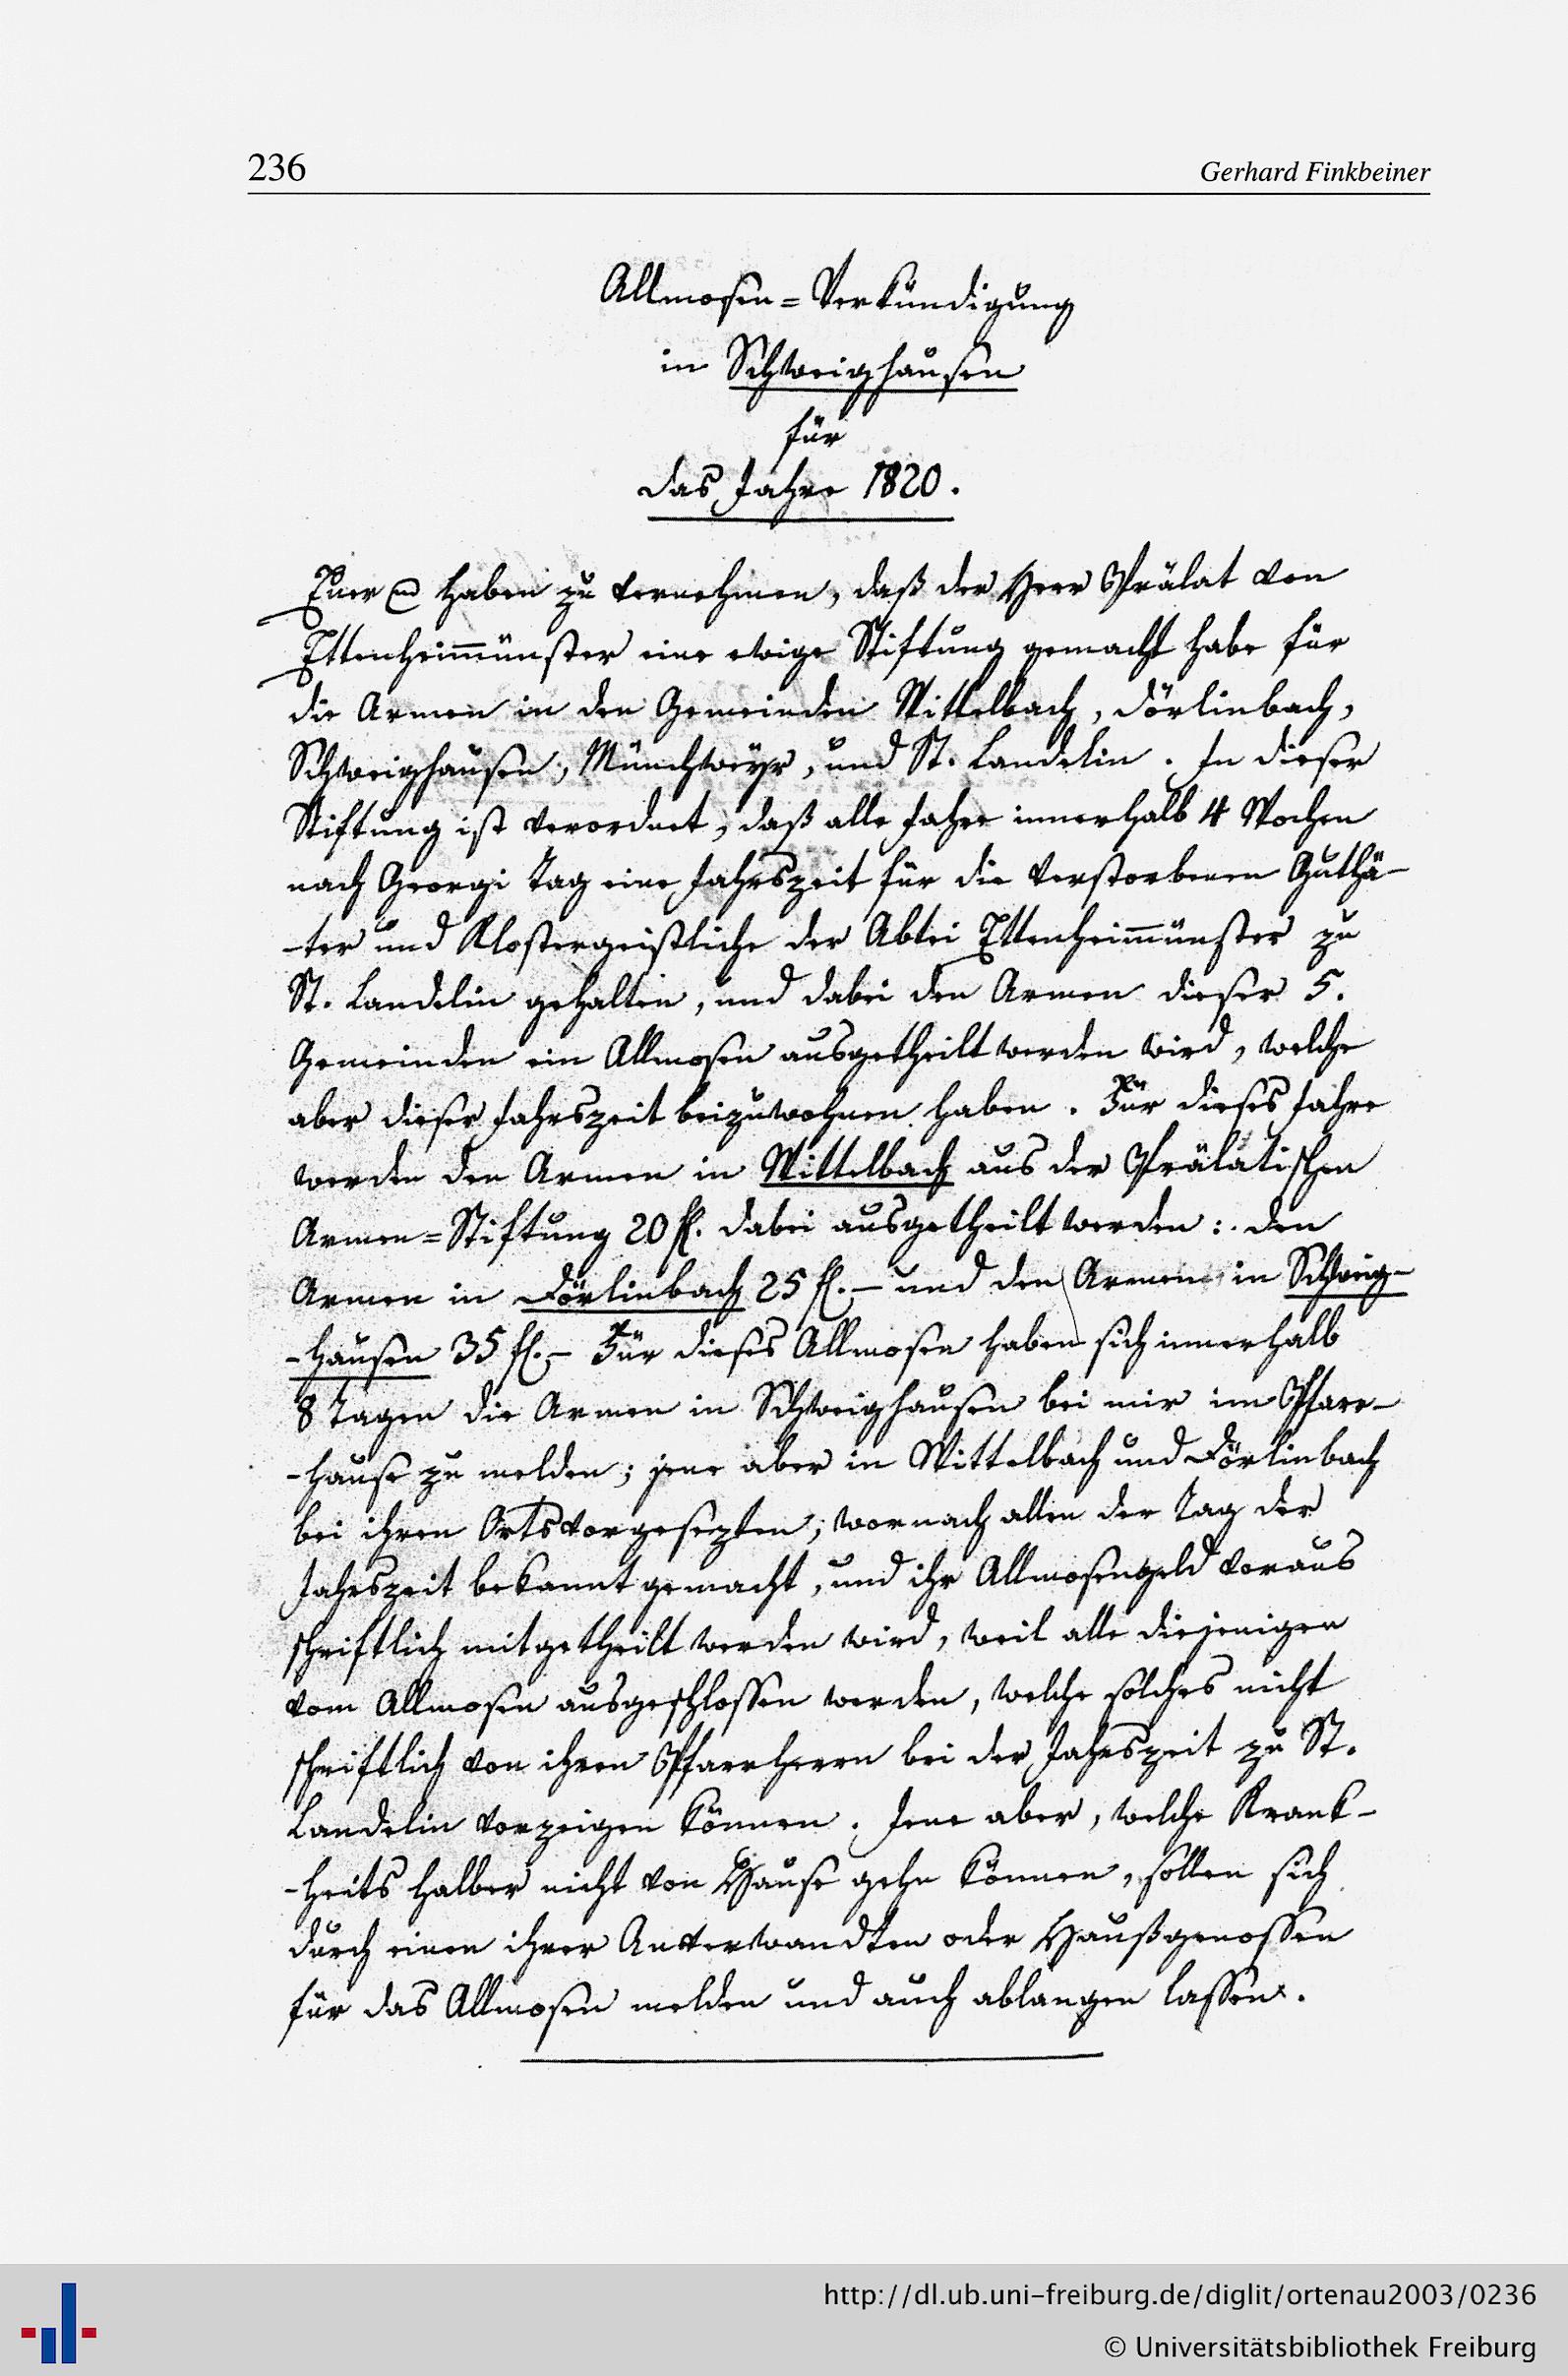 236
Gerhard Finkbeiner
Allmosen=Verkündigung
in Schweighausen
für
das Jahre 1820.
Euer haben zu vernehmen, daß der Herr Prälat von
Ettenheimmünster eine ewige Stiftung gemacht habe für
die Armen in den Gemeinden Wittelbach, Dörlinbach,
Schweighausen, Münchweÿr, und St. Landelin. In dieser
Stiftung ist verordnet, daß alle Jahre innerhalb 4 Wochen
nach Georgi Tag eine Jahrszeit für die Verstorbenen Guthä-
-ter und Klostergeistliche der Abtei Ettenheimmünster zu
St. Landelin gehalten, und dabei den Armen dieser 5.
Gemeinden ein Allmosen ausgetheilt werden wird, welche
aber dieser Jahrszeit beizuwohnen haben. Für dieses Jahre
werden den Armen in Wittelbach aus der Prälatischen
Armen=Stiftung 20 fl. dabei ausgetheilt werden: den
Armen in Dörlinbach 25 fl. – und den Armen in Schweig-
-hausen 35 fl. – Für dieses Allmosen haben sich innerhalb
8 Tagen die Armen in Schweighausen bei mir im Pfarr-
-hause zu melden; jene aber in Wittelbach und Dörlinbach
bei ihren Ortsvorgesezten; wornach allen der Tag der
Jahrszeit bekannt gemacht, und ihr Allmosengeld voraus
schriftlich mitgetheilt werden wird, weil alle diejenigen
vom Allmosen ausgeschlossen werden, welche solches nicht
schriftlich von ihren Pfarrherrn bei der Jahrszeit zu St.
Landelin vorzeigen können. Jene aber, welche Krank-
-heits halber nicht von Hause gehn können, sollen sich
durch einen ihrer Anverwandten oder Haußgenossen
für das Allmosen melden und auch ablangen lassen.
http://dl.ub.uni-freiburg.de/diglit/ortenau2003/0236
© Universitätsbibliothek Freiburg